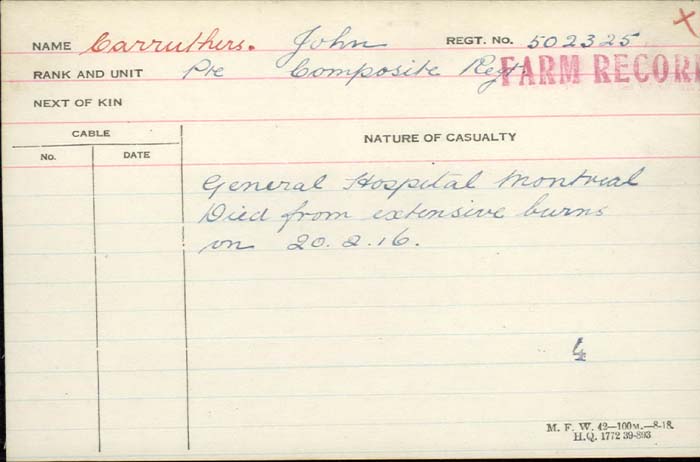 X
NAME Carruthers. John REGT. No. 502325
RANK AND UNIT Pte Composite Regt FARM RECOR
NEXT OF KIN
CABLE NATURE OF CASUALTY
No. DATE
General Hospital Montreal
Died from extensive burns
on 20.2.16.
4
M. F. W. 42—100M.—8-18.
H.Q. 1772 39-893